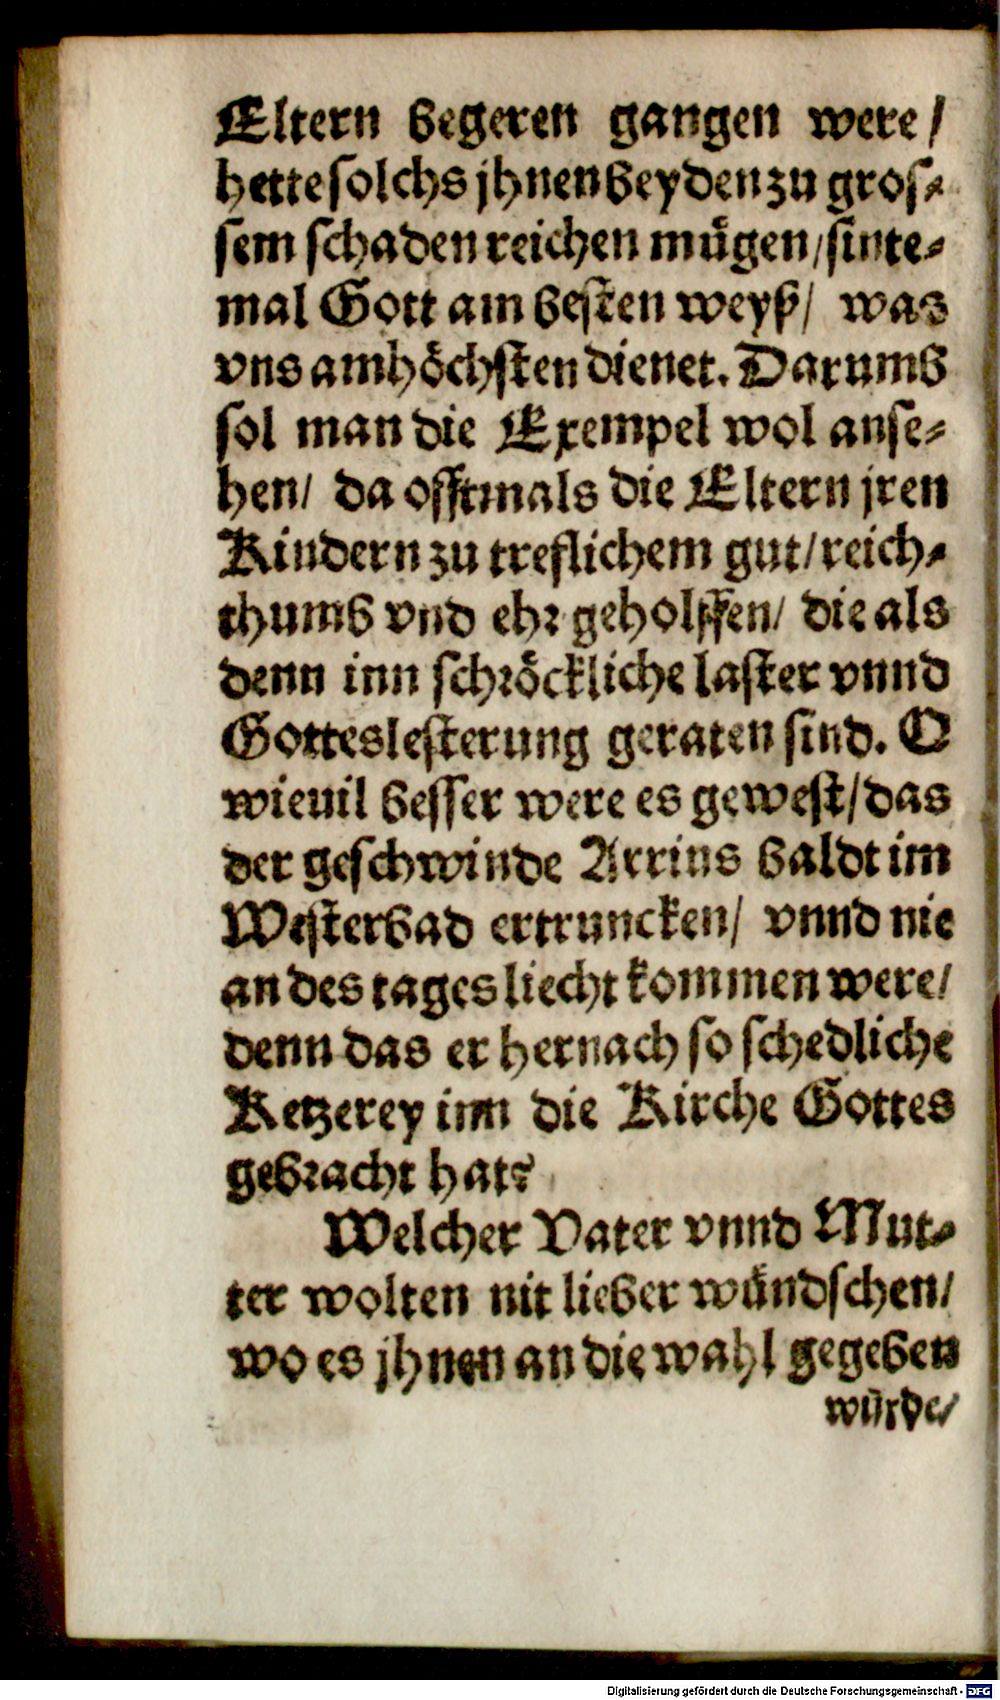 Eltern begeren gangen were /
hette solchs jhnen beyden zu gros⸗
sem schaden reichen mügen / sinte⸗
mal Gott am besten weyß / was
vns am höchsten dienet. Darumb
sol man die Exempel wol anse⸗
hen / da offtmals die Eltern jren
Kindern zu treflichem gut / reich⸗
thumb vnd ehr geholffen / die als
denn inn schröckliche laster vnnd
Gotteslesterung geraten sind. O
wieuil besser were es gewest / das
der geschwinde Arrius baldt im
Westerbad ertruncken / vnnd nie
an des tages liecht kommen were /
denn das er hernach so schedliche
Ketzerey inn die Kirche Gottes
gebracht hat?
Welcher Vater vnnd Mut⸗
ter wolten nit lieber wündschen /
wo es jhnen an die wahl gegeben
würde /
Digitalisierung gefördert durch die Deutsche Forschungsgemeinschaft - DFG